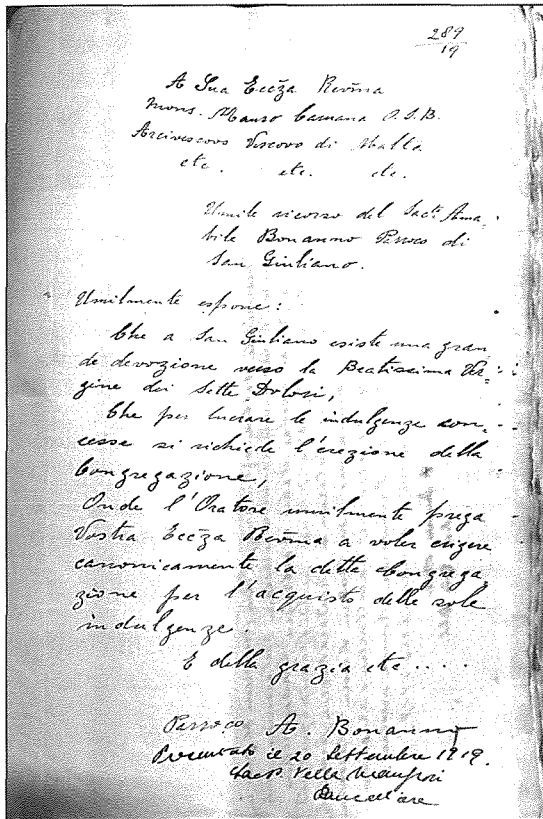 289
19
A Sua Eccza Revma
Mons. Mauro Caruana O.S.B.
Arcivescovo Vescovo di Malta
etc. etc. etc.
Umile ricorso del Sact. Ama-
bile Bonanno Parroco di
San Giuliano.
Umilmente espone:
Che a San Giuliano esiste una gran
de devozione verso la Beatissima Ver-
gine dei Sette Dolori,
Che per lucrare le indulgenze con-
cesse si richiede l'erezione della
Congregazione,
Onde l'Oratore umilmente prega
Vostra Eccza Revma a voler erigere
canonicamente la detta Congrega
zione per l'acquisto delle sole
indulgenze.
E della grazia etc.....
Parroco A. Bonanno
Presentato il 20 Settembre 1919.
Sac. Vella Mangion
Cancelliere